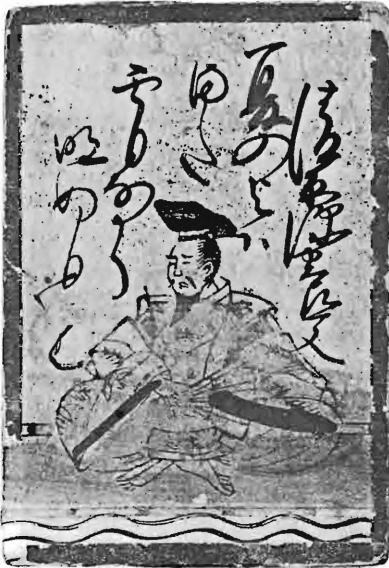 清原深養父
夏のよハ
また
宵なから
明ぬるを